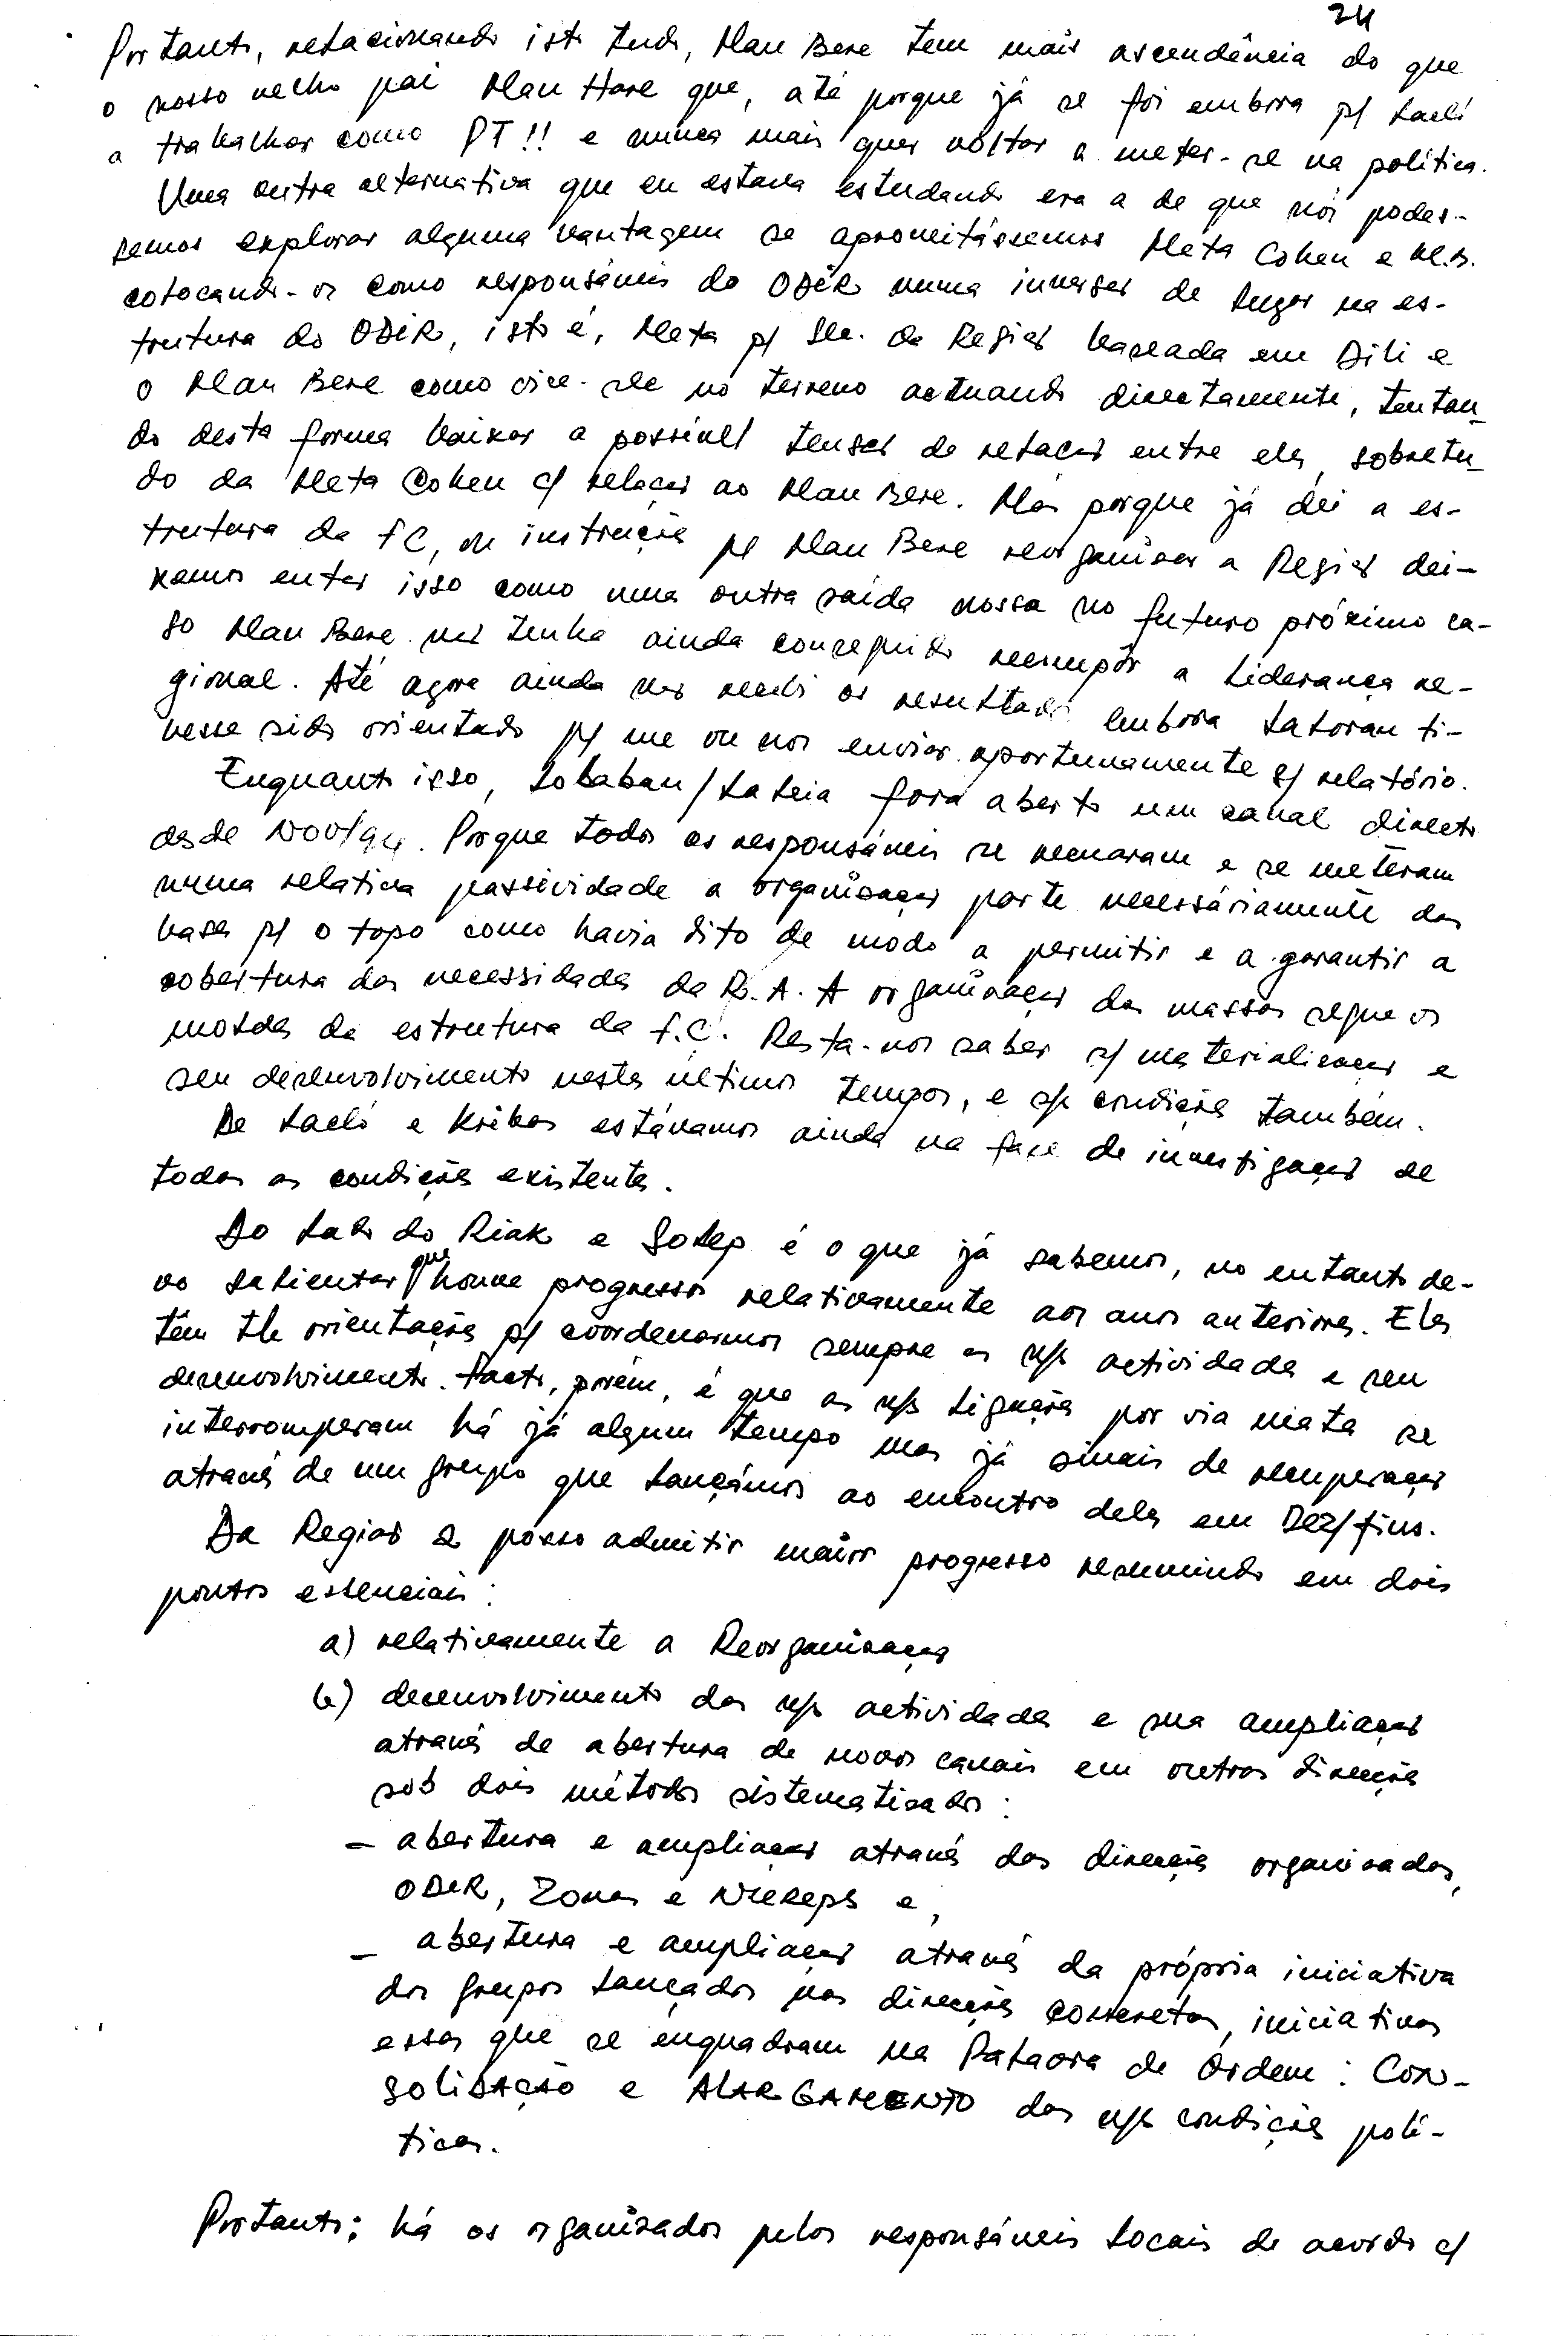 24
Portanto, relacionando isto tudo, Mau Bere tem mais ascendência do que
o nosso velho pai Mau Hare que, até porque já se foi embora p/ Lacló
a trabalhar como PT!! e nunca mais quer voltar a meter-se na política.
Uma outra alternativa que eu estava estudando era a de que nós podes-
semos explorar alguma vantagem se aproveitássemos Meta Cohen e M.B.
colocando-os como responsáveis do ODIR numa inversão de lugar na es-
trutura do ODIR, isto é, Meta p/ Se. da Região baseada em Dili e
o Mau Bere como vice-se no terreno actuando directamente, tentan-
do desta forma baixar a possível tensão de relação entre eles, sobretu-
do da Meta Cohen c/ relação ao Mau Bere. Mas porque já dei a es-
trutura da FC, as instruções p/ Mau Bere reorganisar a Região dei-
xamos então isso como uma outra saída nossa no futuro próximo ca-
so Mau Bere não tenha ainda conseguido recompôr a liderança re-
gional. Até agora ainda não recebi os resultados embora Latoran ti-
vesse sido orientado p/ me ou nos enviar oportunamente s/ relatório.
Enquanto isso, Lobaban/Laleia fora aberto um canal directo
desde Nov/94. Porque todos os responsáveis se recuaram e se meteram
numa relativa passividade a organisação parte necessáriamente das
bases p/ o topo como havia dito de modo a permitir e a garantir a
cobertura das necessidades da R.A. A organisação das massas segue os
moldes da estrutura da F.C. Resta-nos saber s/ materialisação e
seu desenvolvimento nestes últimos tempos, e s/s condições também.
De Lacló e Kribas estávamos ainda na fase de investigação de
todas as condições existentes.
Do lado do Riak e Solep é o que já sabemos, no entanto de-
vo salientar que houve progressos relativamente aos anos anteriores. Eles
têm tb orientações p/ coordenarmos sempre as n/s actividades e seu
desenvolvimento. Facto, porém, é que as n/s ligações por via mata se
interromperam há já algum tempo mas já sinais de recuperação
através de um grupo que lançámos ao encontro deles em Dez/fins.
Da Região 2 posso admitir maior progresso resumindo em dois
pontos essenciais:
a) relativamente a Reorganisação
b) desenvolvimento das n/s actividades e sua ampliação
através de abertura de novos canais em outras direcções
sob dois métodos sistematisados:
- abertura e ampliação através das direcções organisadas,
ODIR, Zonas e Nureps e,
- abertura e ampliação através da própria iniciativa
dos grupos lançados nas direcções concretas, iniciativas
essas que se enquadram na Palavra de Ordem: CON-
SOLIDAÇÃO e ALARGAMENTO das n/s condições polí-
ticas.
Portanto: há os organisados pelos responsáveis locais de acordo c/